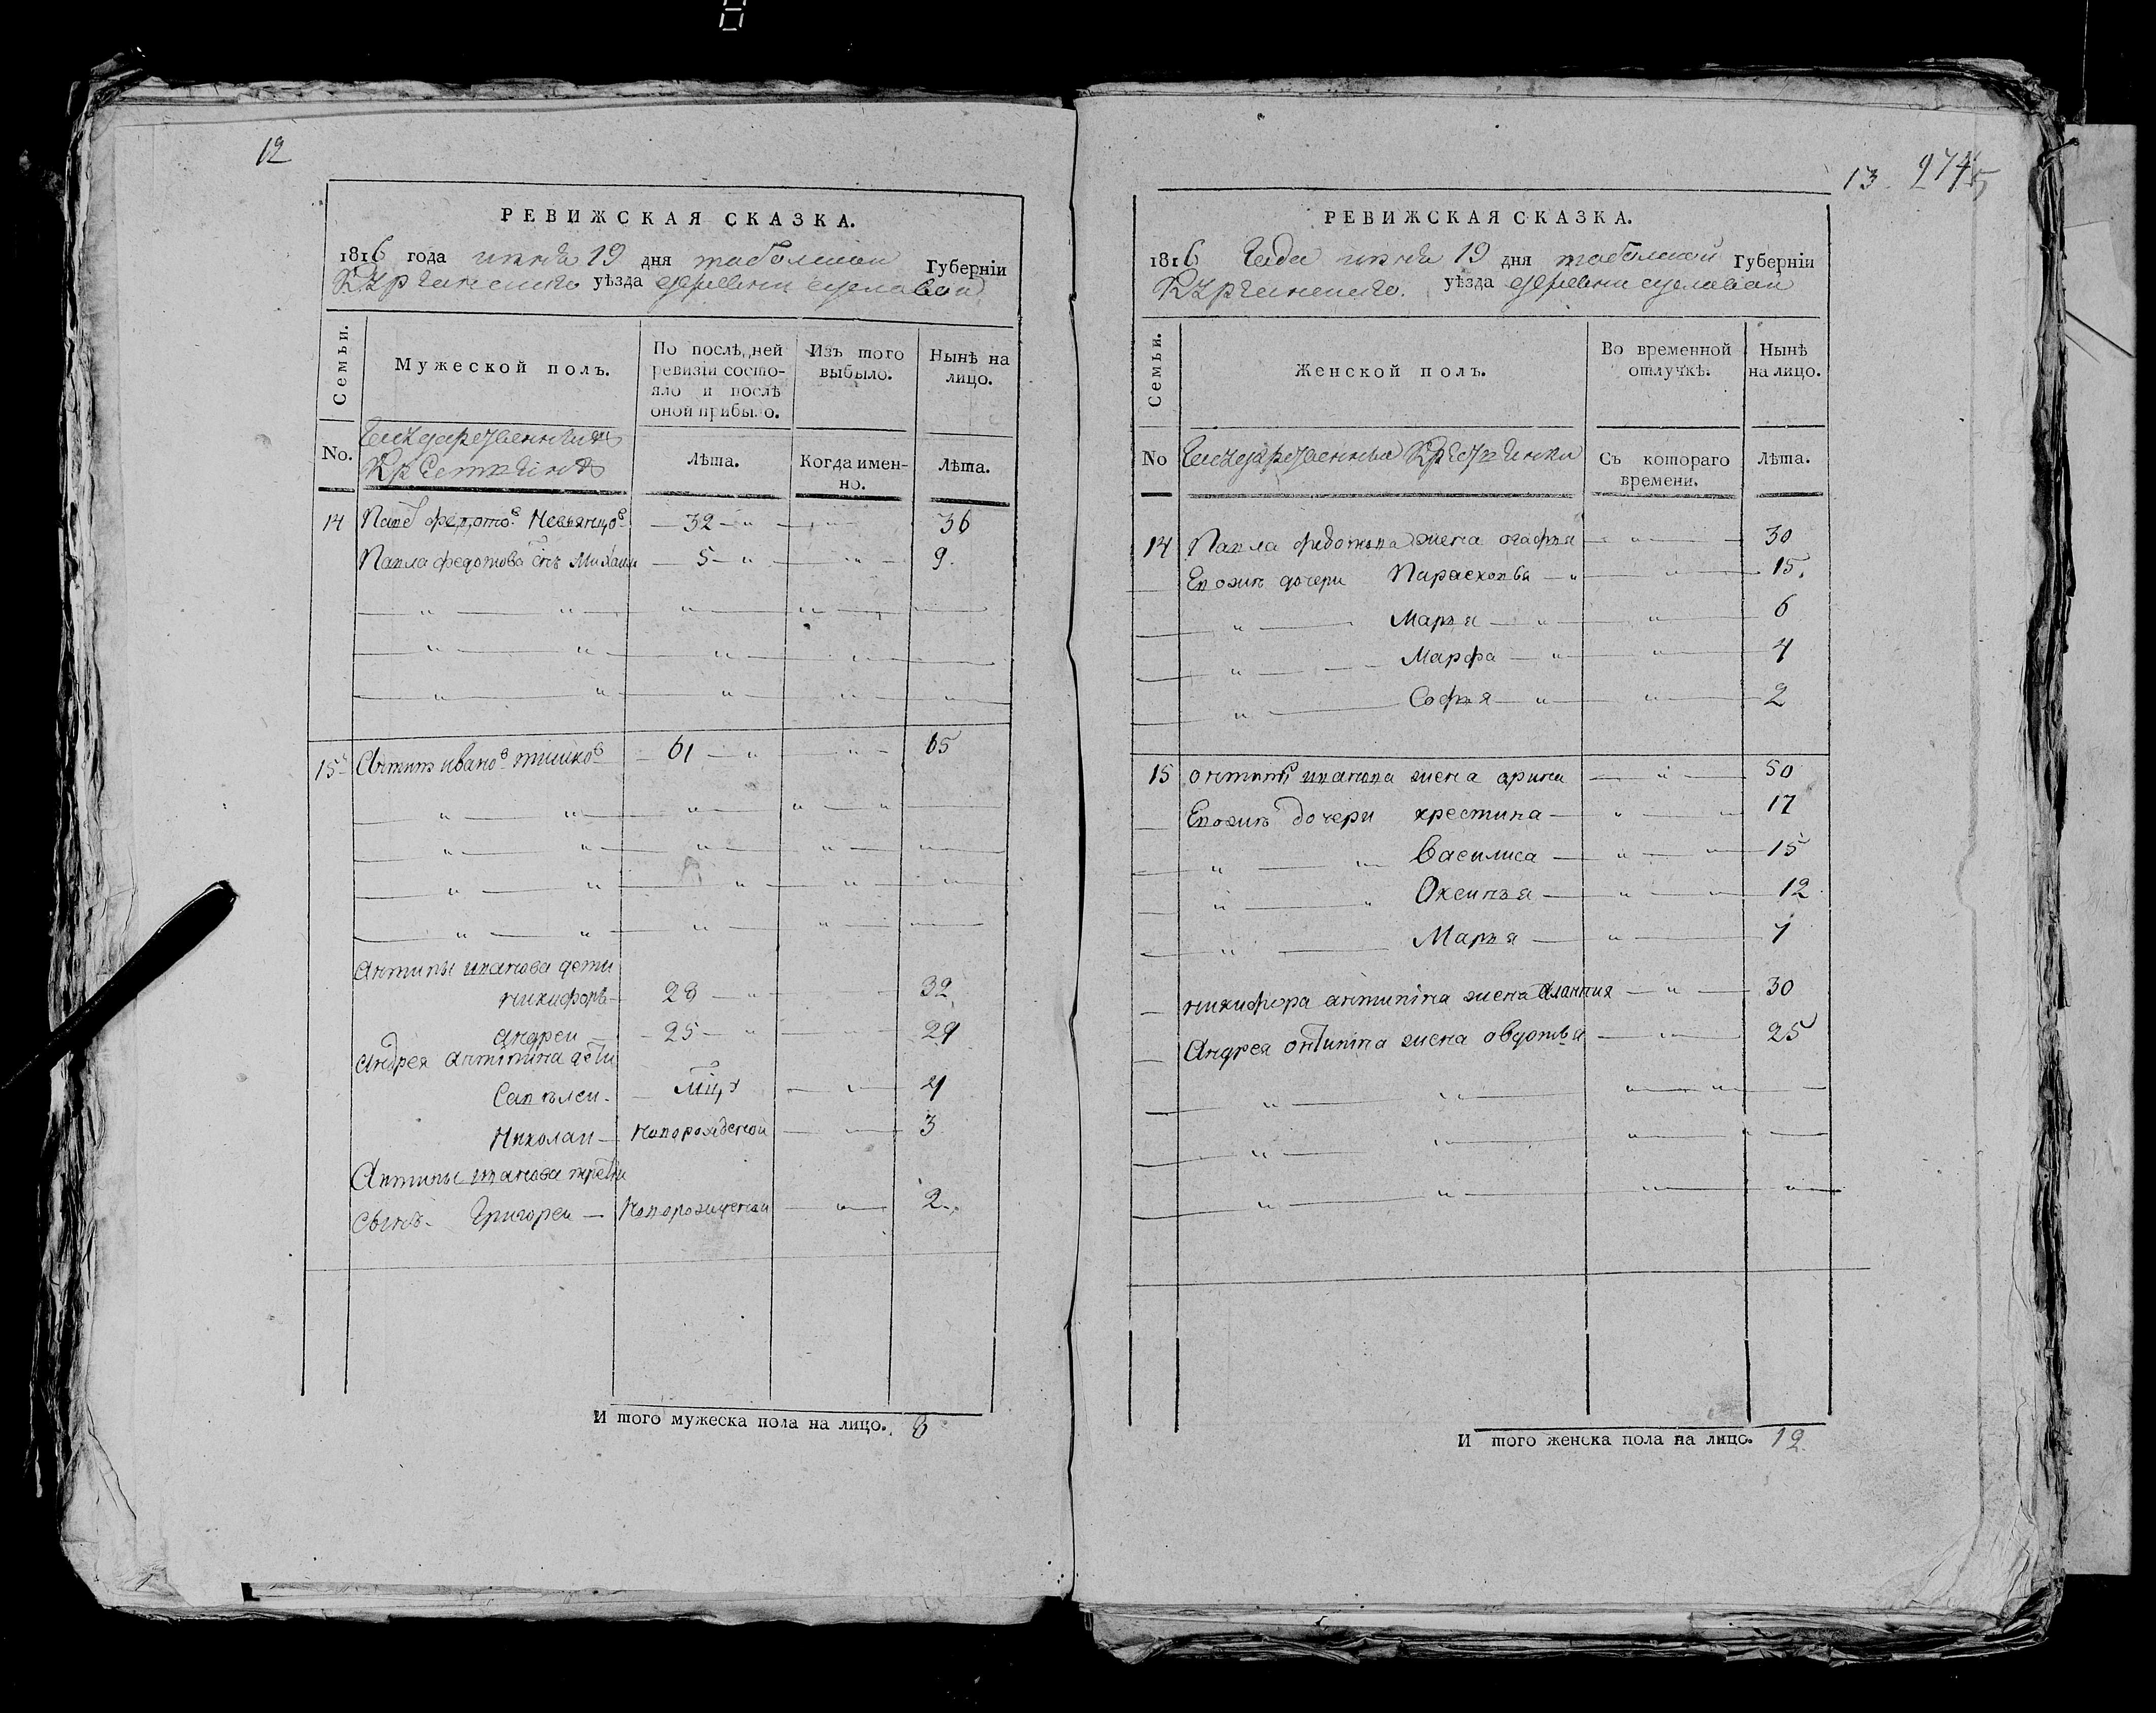 12
РЕВИЖСКАЯ СКАЗКА.
1816 года июня 19 дня таболской Губернiи
Курганского уѣзда деревни
Семьи.
Мужеской полъ.
По послѣдней ревизiи состояло и послѣ оной прибыло.
Изъ того выбыло.
Нынѣ на лицо.
No.
Крестьянъ
Лѣта.
Когда именно.
Лѣта.
14 Павел федотов Невьянцов — 32 — " — " — 36
Павла федотова сн Михаил — 5 — " — " — 9.
15 Антип иванов тишков — 61 — " — " — 65
Антипы иванова дети
никифоръ — 28 — " — 32
андреи — 25 — " — " — 29
андрея антипина дети
Савелеи — — " — 4
Николаи — новорожденои — " — 3
Антипы иванова трети
сынъ Григореи — новорожденои — " — 2
И того мужеска пола на лицо. 8
13. 274 5
РЕВИЖСКАЯ СКАЗКА.
1816 Года июня 19 дня таболской Губернiи
Курганского уѣзда деревни
Семьи.
Женской полъ.
Во временной отлучкѣ.
Нынѣ на лицо.
No
Съ котораго времени.
Лѣта.
14 Павла федотова жена огафья — " — 30
Евожъ дочери Парасковья — " — " — 15.
" — Марья — " — " — 6
" — Марфа — " — " — 4
" — Софья — " — " — 2
15 онтипа иванова жена арина — " — 50
Евожъ дочери крестина — " — " 17
" — " Василиса — " — " — 15
" — " Оксинья — " — " — 12
" — Марья — " —
никифора антипина жена — " — 30
Андрея онтипина жена овдотья — " — 25
И того женска пола на лицо. 12